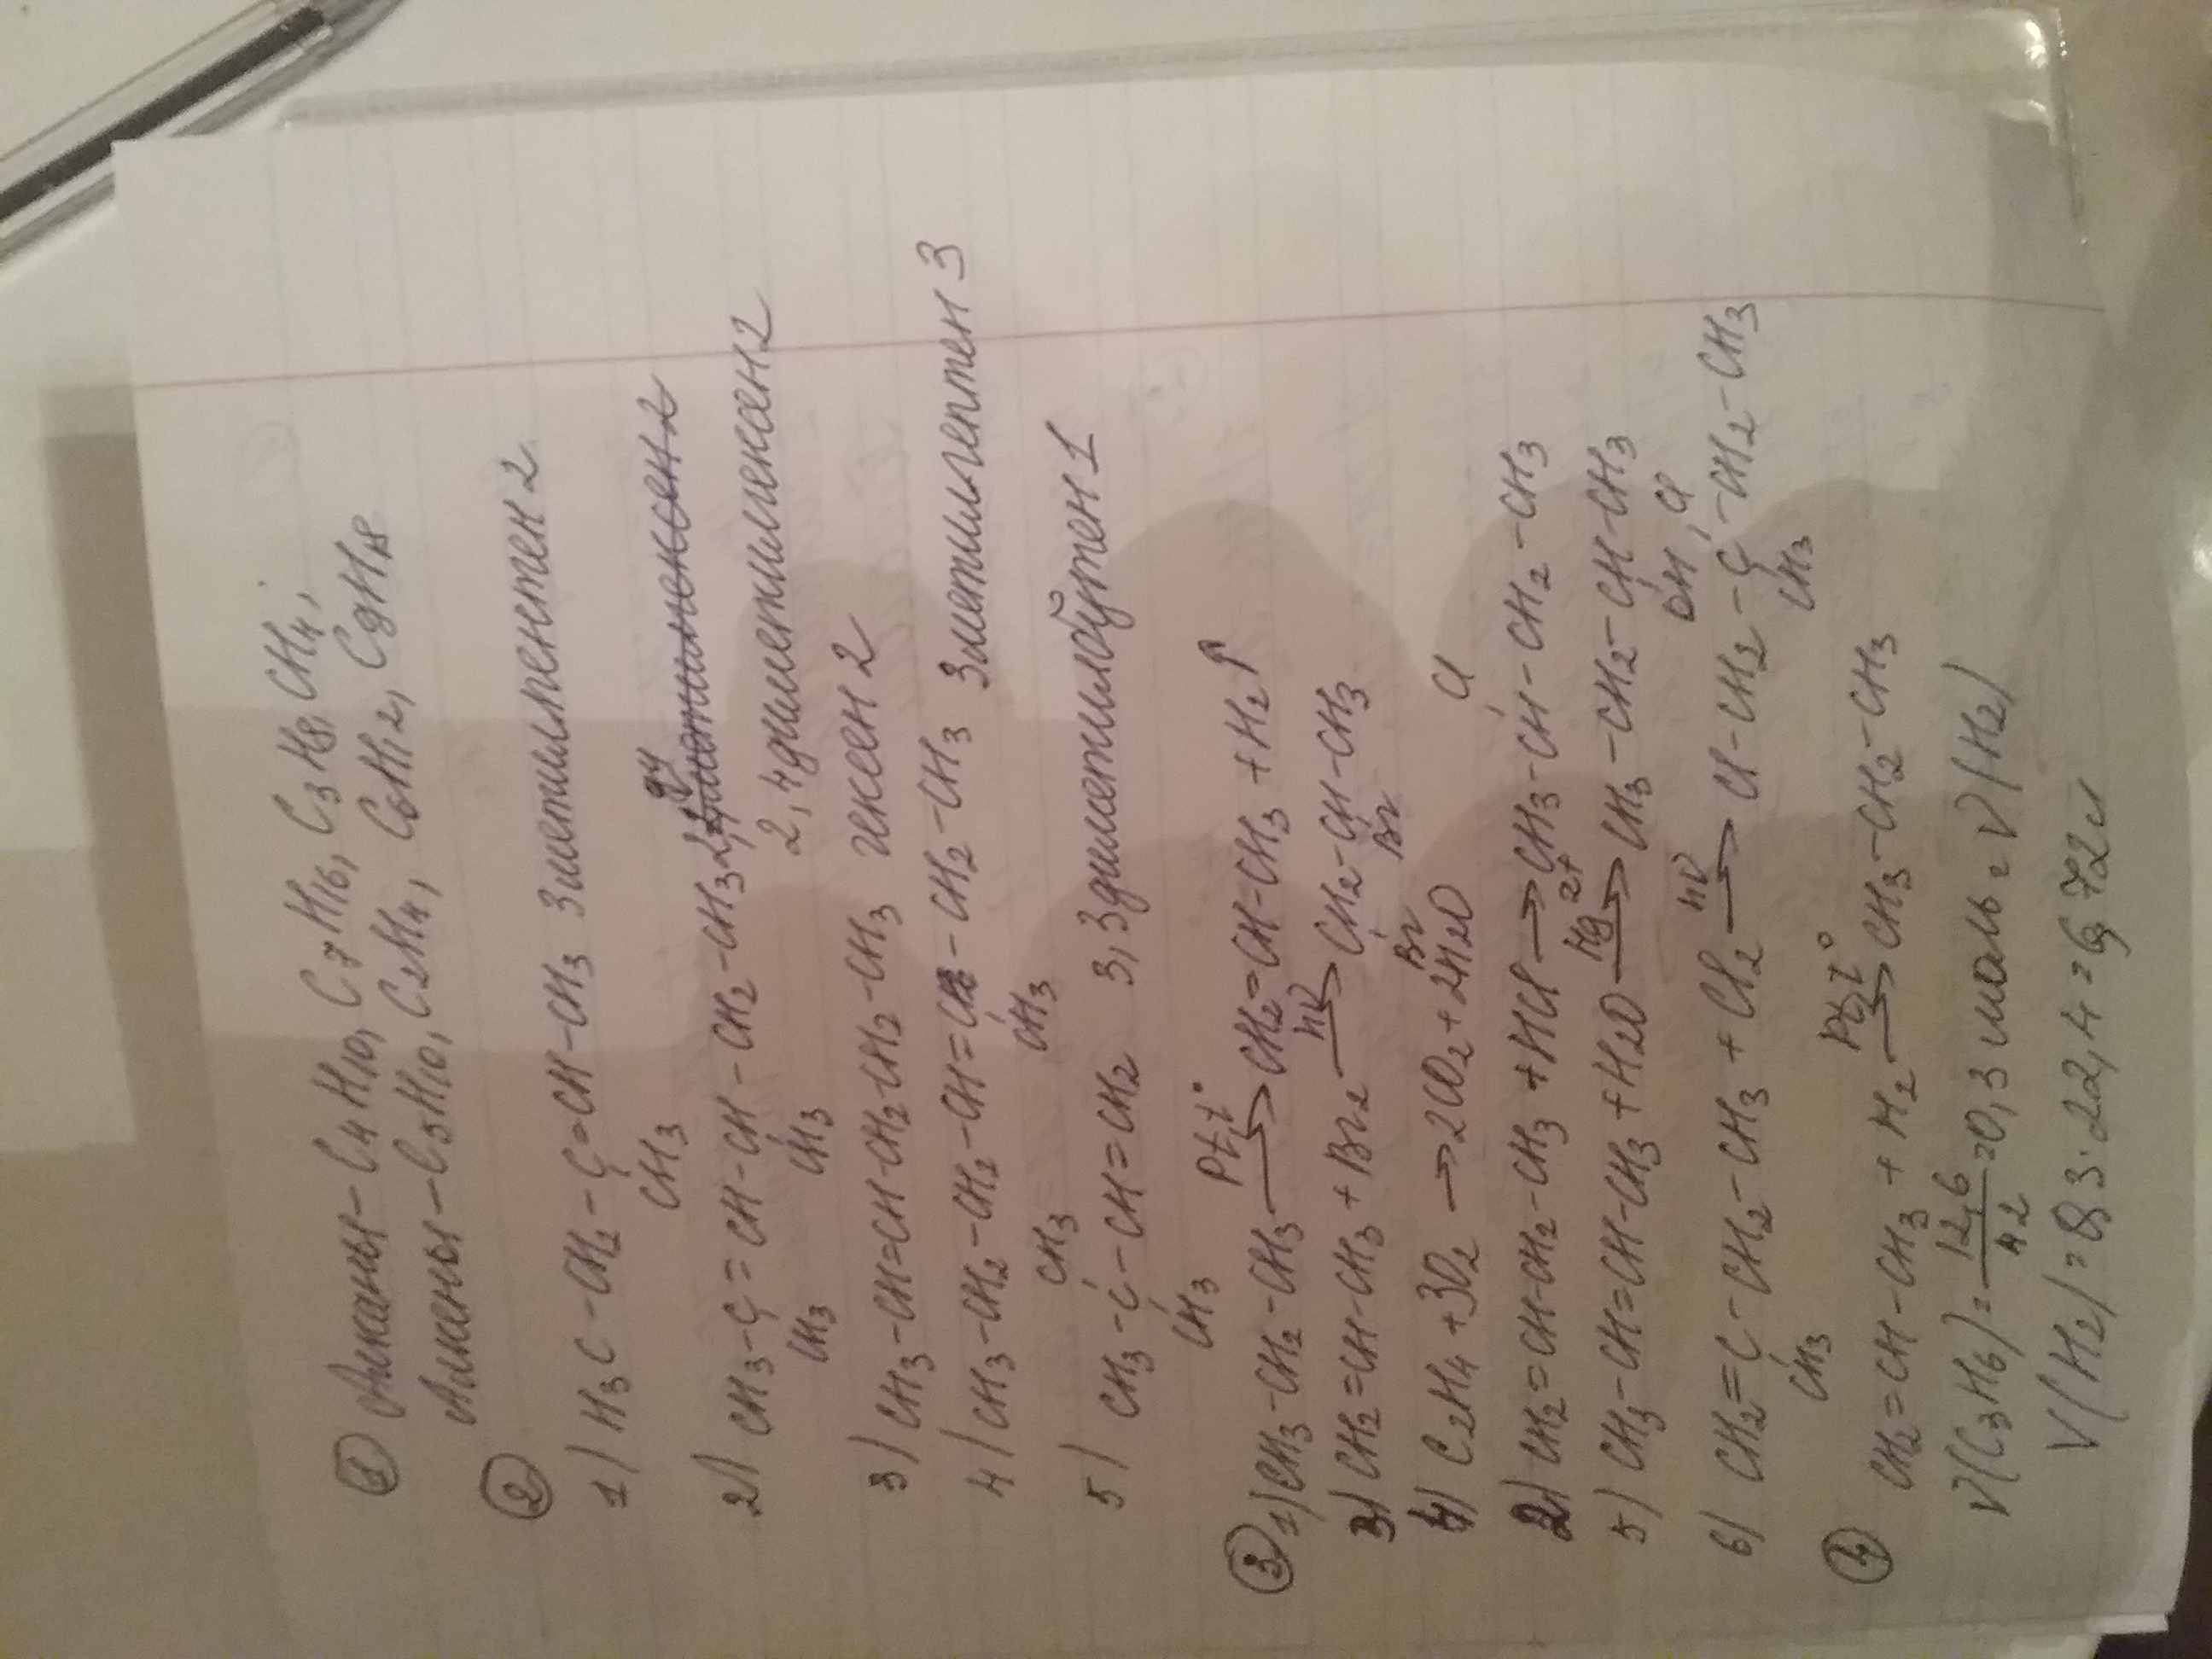 ① Алканы – C4H10, C7H16, C3H8, CH4;
Алкены – C5H10, C2H4, C6H12, C9H18
②
1) H3C – CH2 – C = CH – CH3 3 метилпентен 2
CH3
2) CH3 – C = CH – CH – CH2 – CH3
CH3 CH3
2, 4 диметилгексен 2
3) CH3 – CH = CH – CH2 – CH2 – CH3 гексен 2
4) CH3 – CH2 – CH2 – CH = C – CH2 – CH3 3 метилгептен 3
CH3
CH3
5) CH3 – C – CH = CH2 3, 3 диметилбутен 1
CH3
Pt, t°
③ 1) CH3 – CH2 – CH3 → CH2 = CH – CH3 + H2↑
hν
3) CH2 = CH – CH3 + Br2 → CH2 – CH – CH3
Br Br
4) C2H4 + 3O2 → 2CO2 + 2H2O
Cl
2) CH2 = CH – CH2 – CH3 + HCl → CH3 – CH – CH2 – CH3
Hg 2+
5) CH3 – CH = CH – CH3 + H2O → CH3 – CH2 – CH – CH3
OH
hν Cl
6) CH2 = C – CH2 – CH3 + Cl2 → Cl – CH2 – C – CH2 – CH3
CH3 CH3
Pt, t°
④ CH2 = CH – CH3 + H2 → CH3 – CH2 – CH3
ν(C3H6) = 12,6 / 42 = 0,3 моль = ν(H2)
V(H2) = 0,3 · 22,4 = 6,72 л